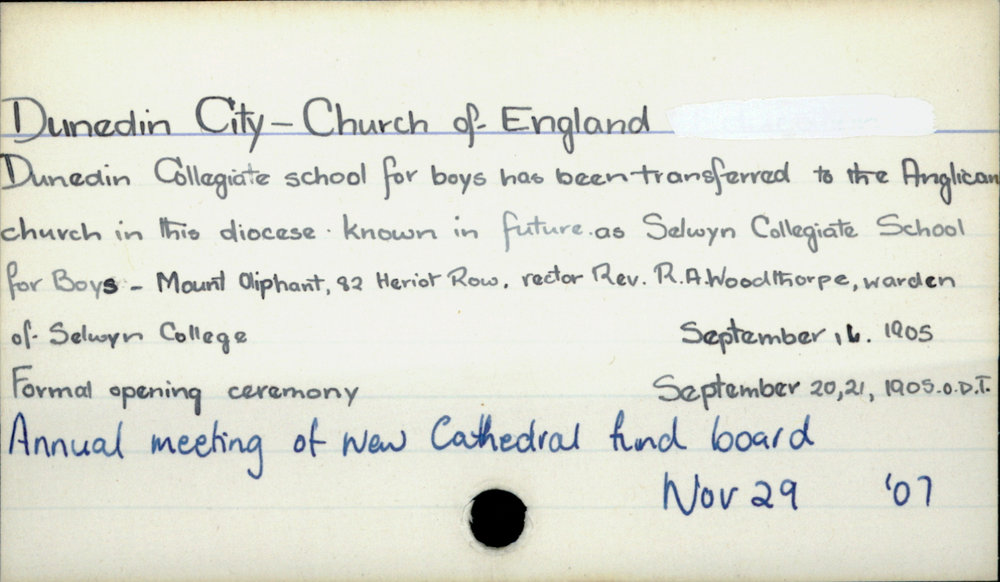 Dunedin City - Church of England
Dunedin Collegiate school for boys has been transferred to the Anglican
church in this diocese. known in future.as Selwyn Collegiate School
for Boys - Mount Oliphant, 92 Heriot Row, rector Rev. R.A.Woodthorpe, warden
of Selwyn College September 16. 1905
Formal opening ceremony September 20,21, 1905.O.D.T.
Annual meeting of New Cathedral fund board
Nov 29 '07